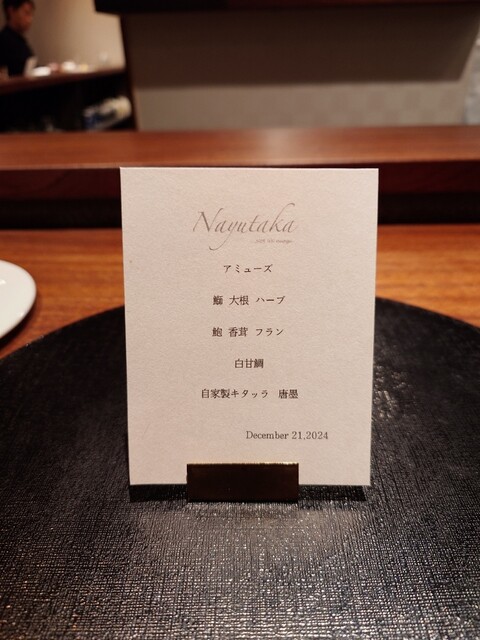 Nayutaka
アミューズ
鰤 大根 ハーブ
鮑 香茸 フラン
白甘鯛
自家製キタッラ 唐墨
December 21,2024